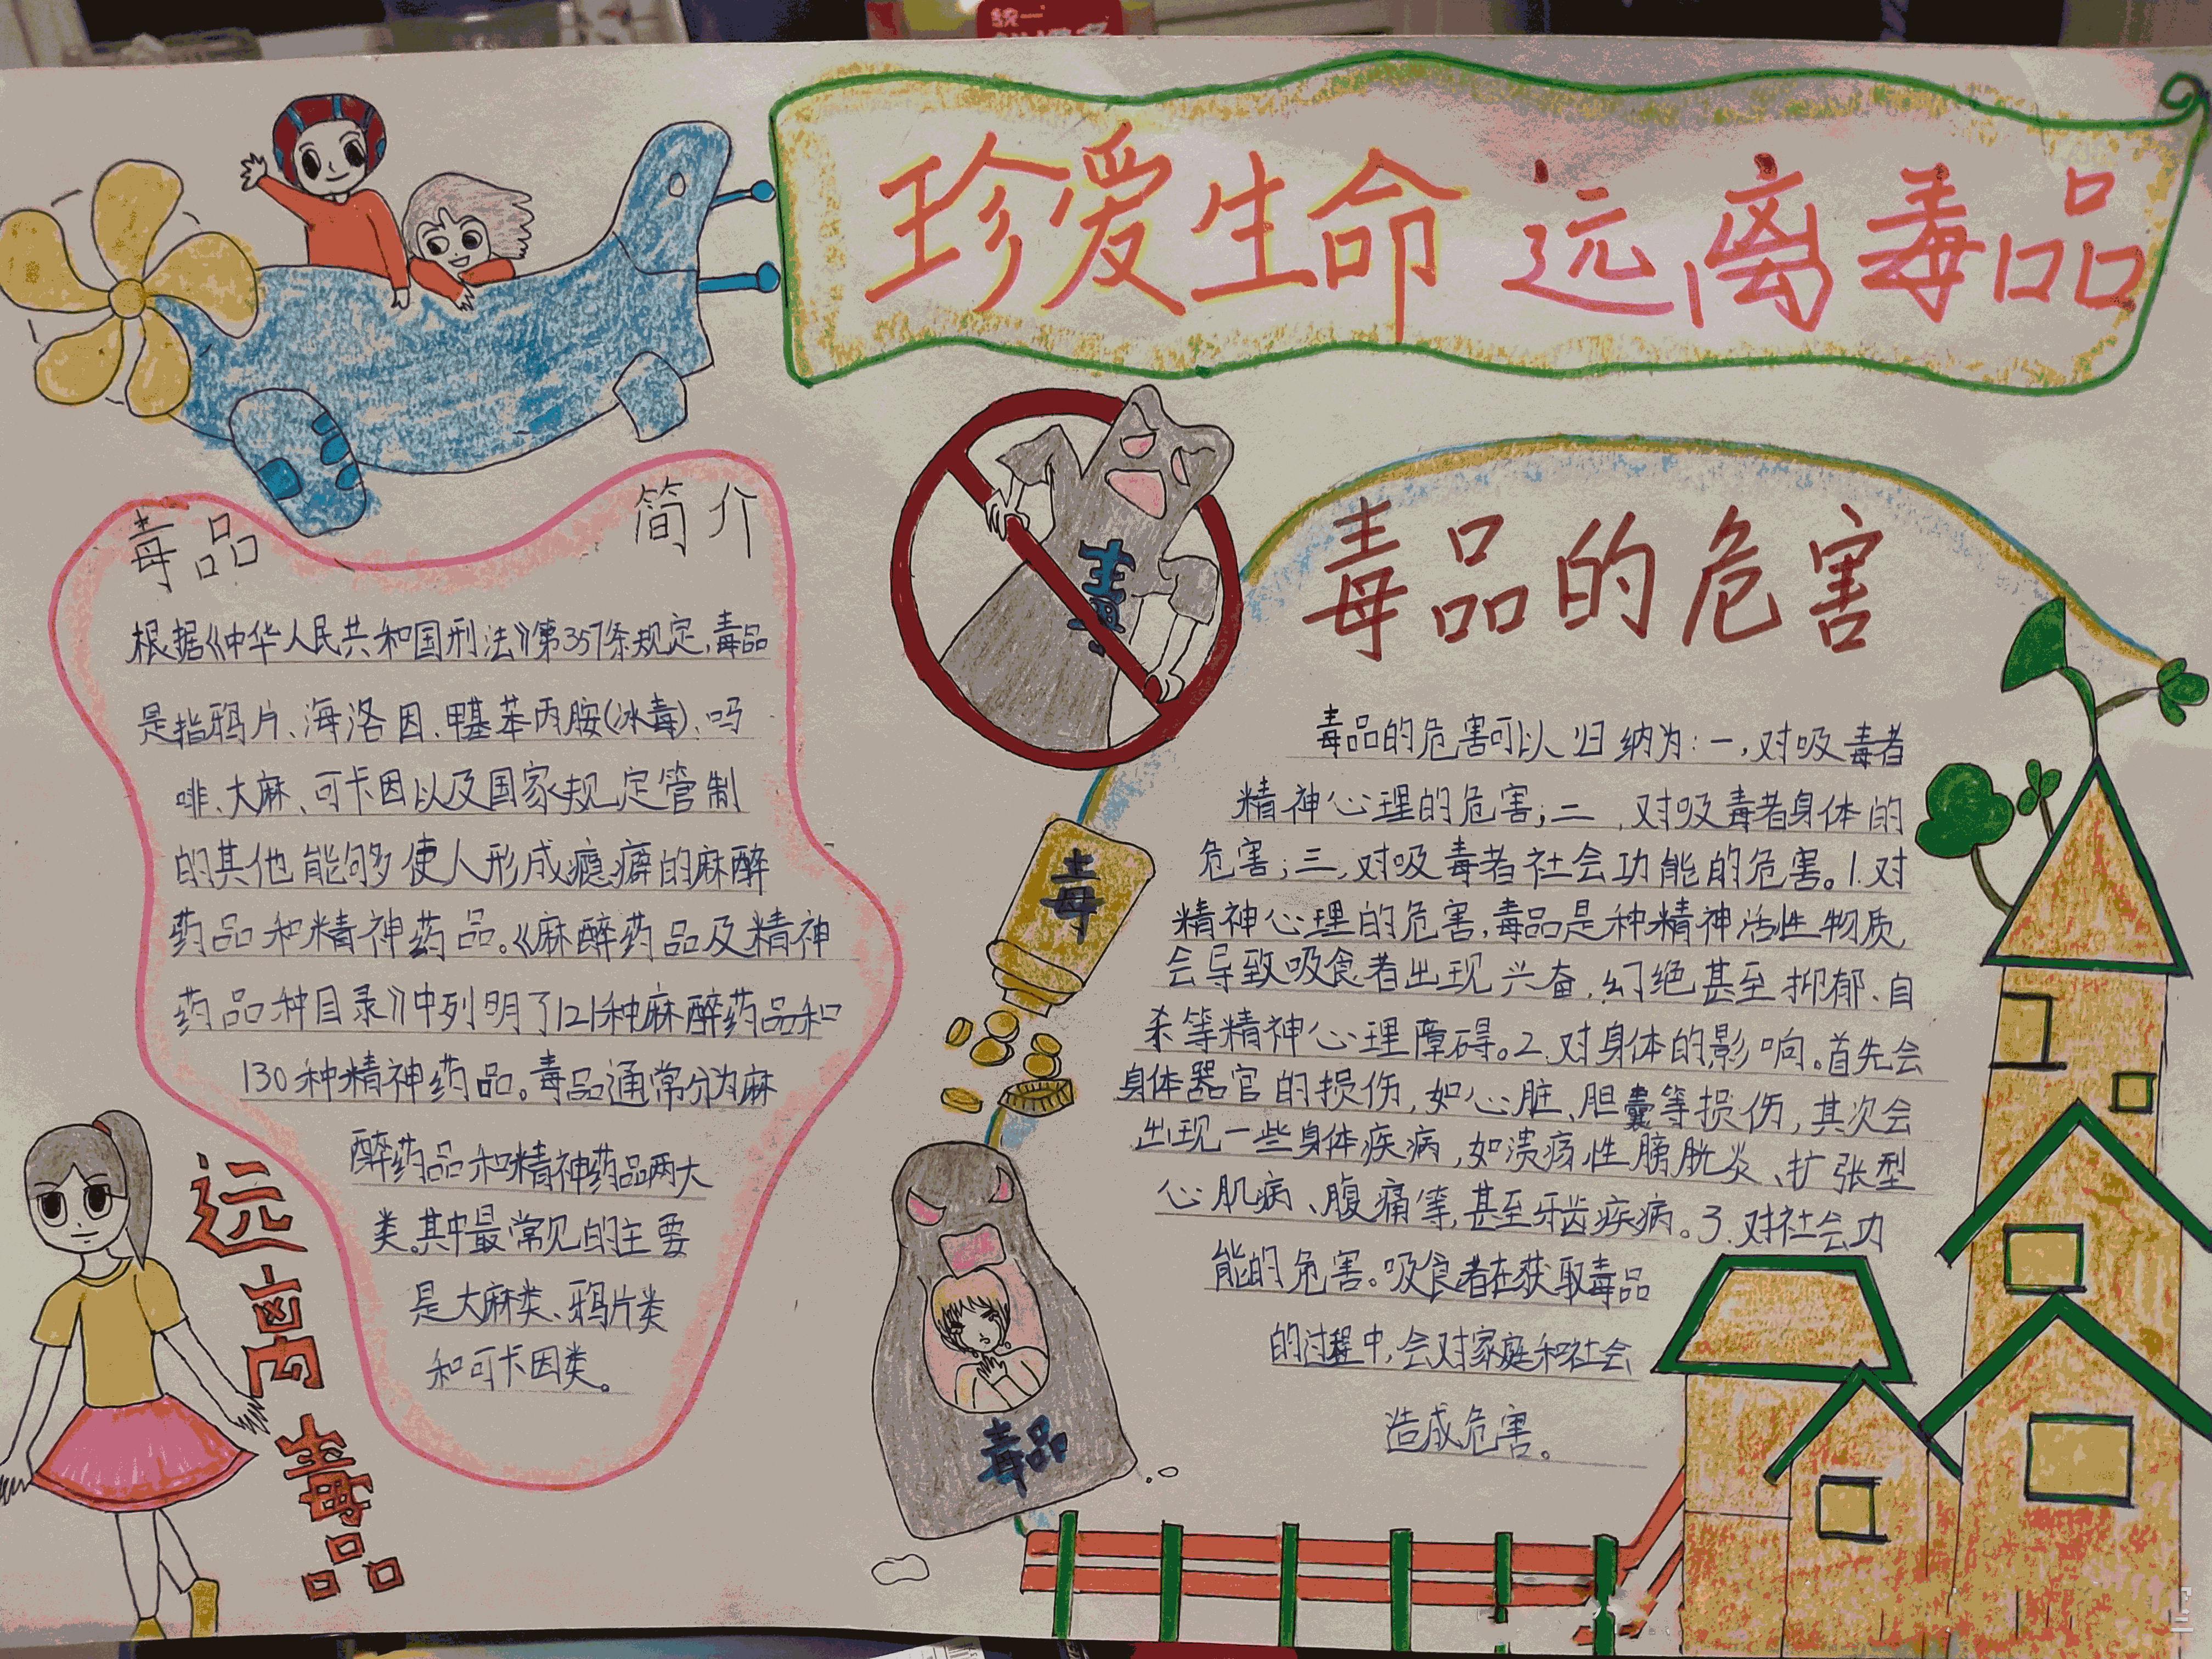 统一
珍爱生命 远离毒品
毒品 简介
根据《中华人民共和国刑法》第357条规定,毒品
是指鸦片、海洛因、甲基苯丙胺(冰毒)、吗
啡、大麻、可卡因以及国家规定管制
的其他能够使人形成瘾癖的麻醉
药品和精神药品。《麻醉药品及精神
药品种目录》中列明了121种麻醉药品和
130种精神药品。毒品通常分为麻
醉药品和精神药品两大
类。其中最常见的主要
是大麻类、鸦片类
和可卡因类。
远离毒品
毒
毒
毒品
毒品的危害
毒品的危害可以归纳为:一,对吸毒者
精神心理的危害;二,对吸毒者身体的
危害;三,对吸毒者社会功能的危害。1.对
精神心理的危害,毒品是种精神活性物质,
会导致吸食者出现兴奋,幻绝甚至抑郁、自
杀等精神心理障碍。2.对身体的影响。首先会
身体器官的损伤,如心脏、胆囊等损伤,其次会
出现一些身体疾病,如溃疡性膀胱炎、扩张型
心肌病、腹痛等,甚至牙齿疾病。3.对社会功
能的危害。吸食者在获取毒品
的过程中,会对家庭和社会
造成危害。